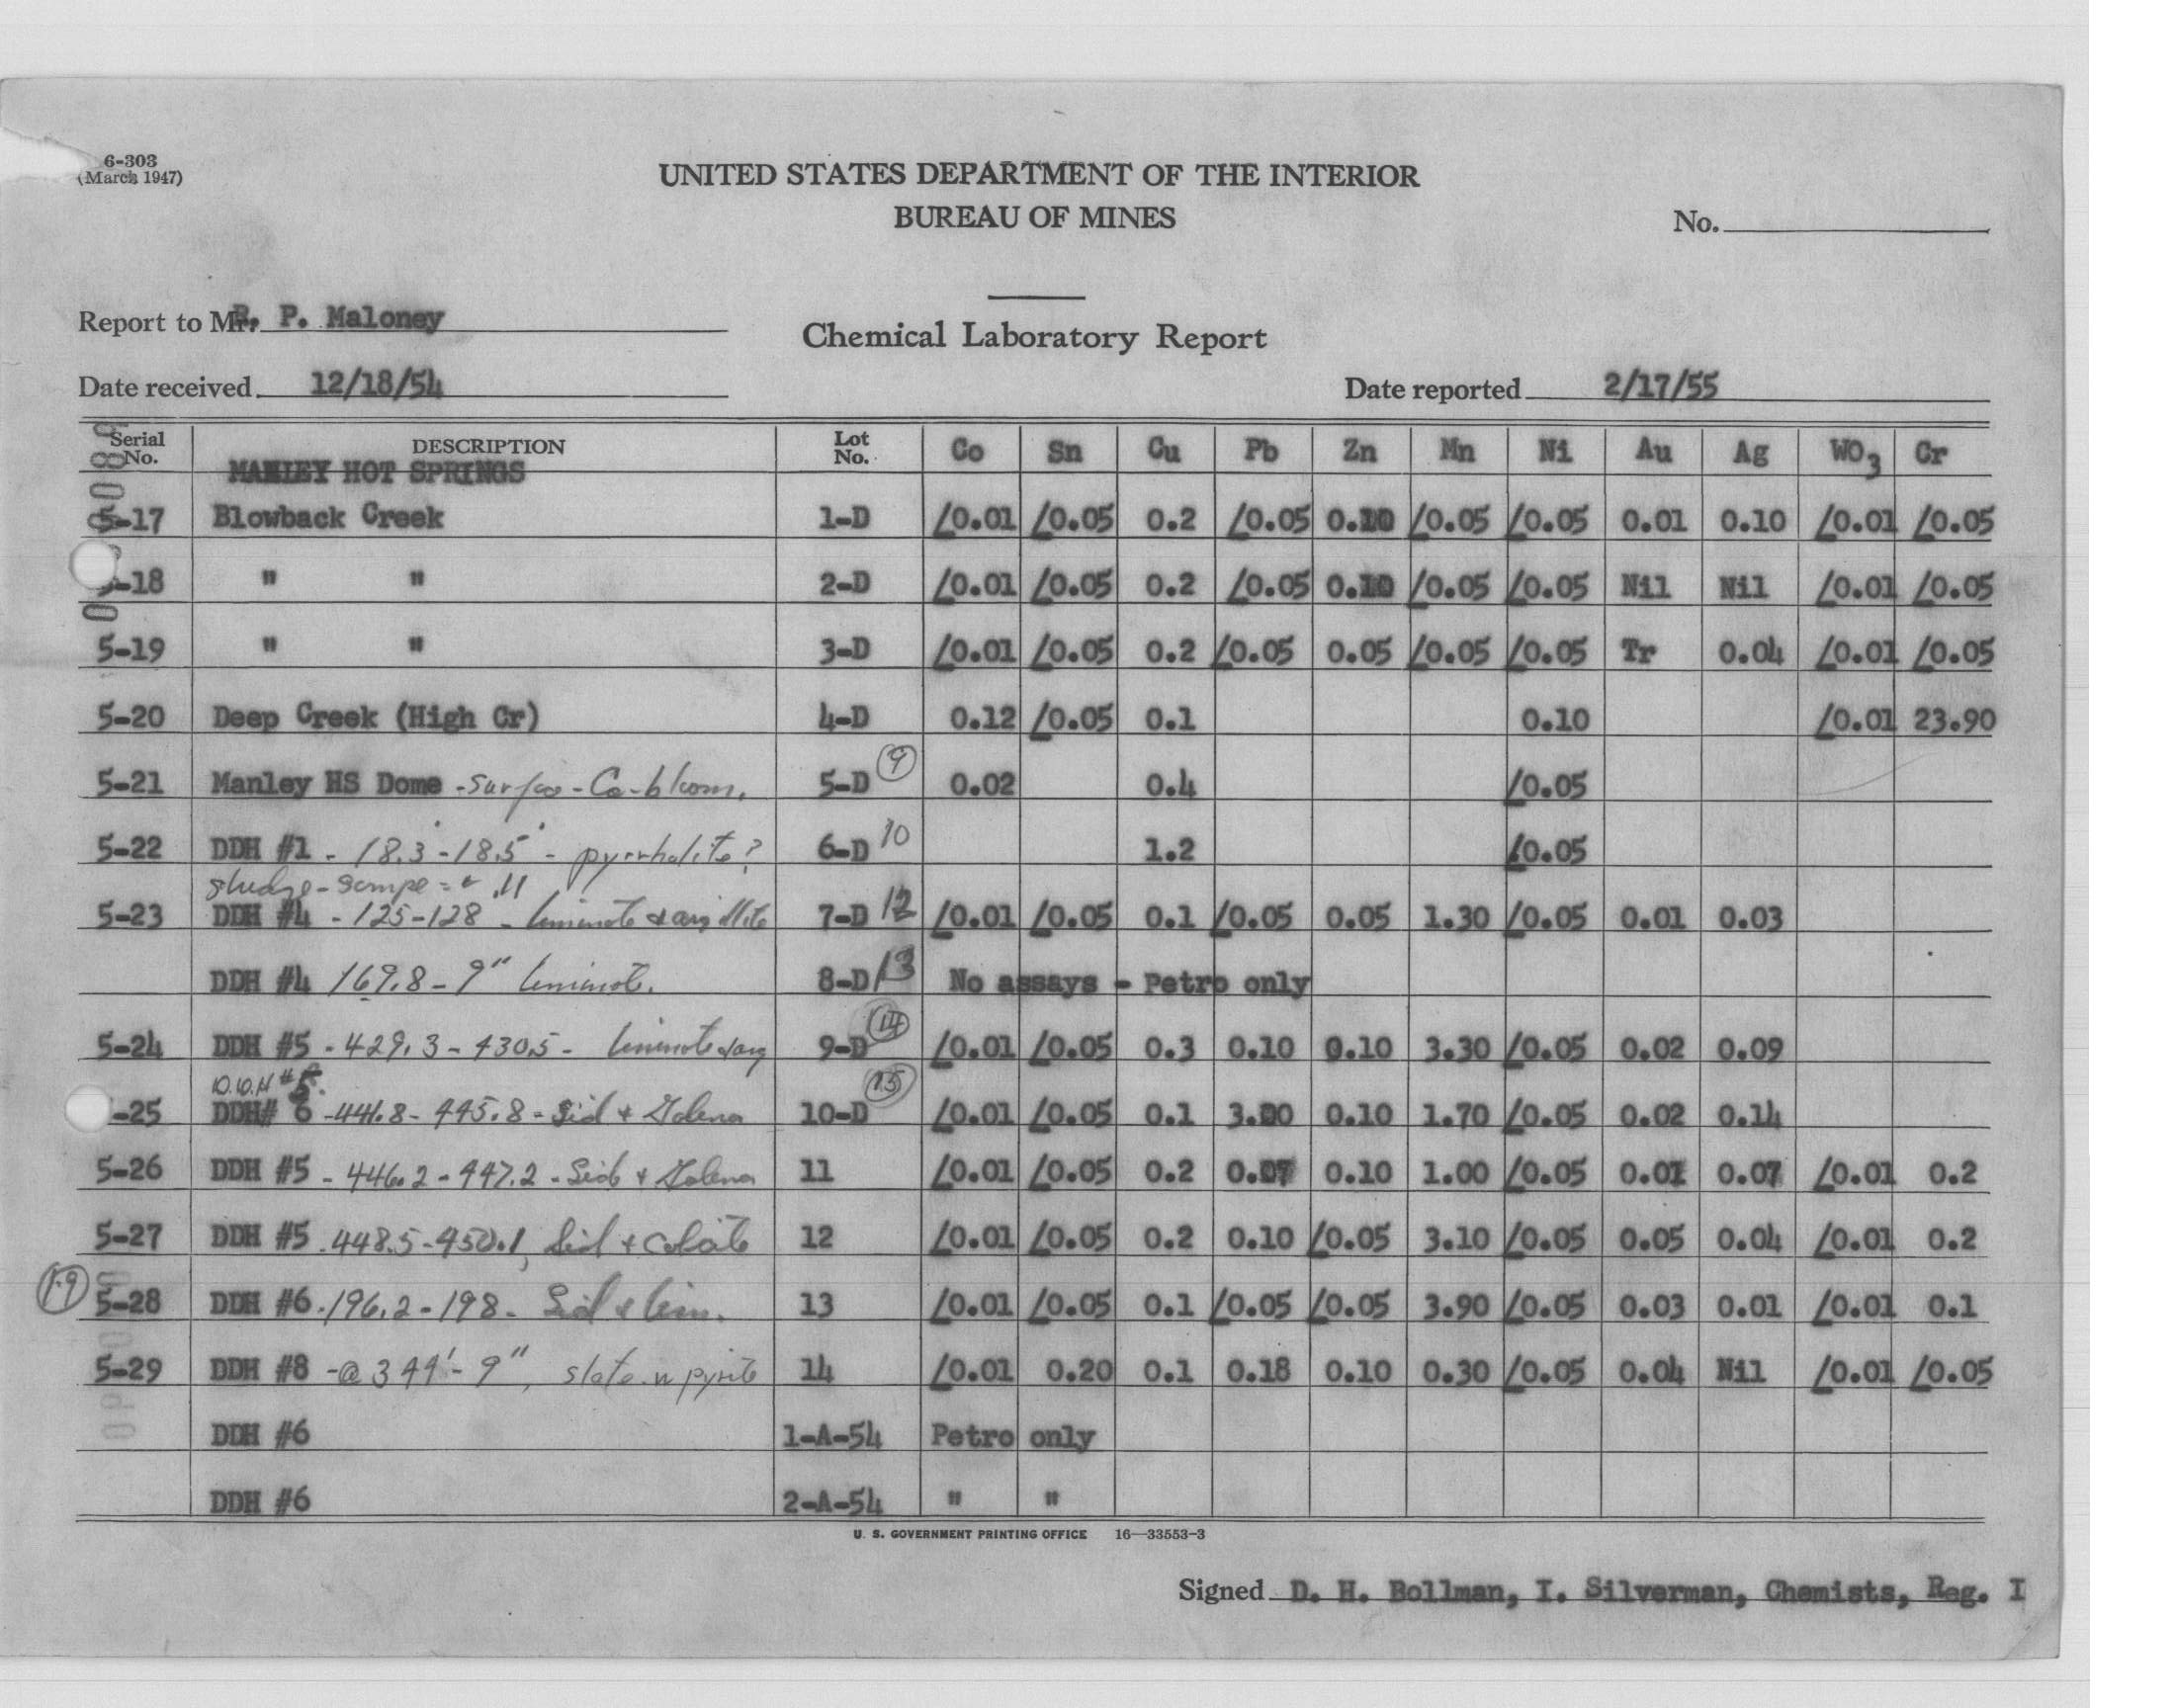 6-303
(March 1947)
UNITED STATES DEPARTMENT OF THE INTERIOR
BUREAU OF MINES
No.
Report to Mr. P. Maloney
Chemical Laboratory Report
Date received 12/18/54
Date reported 2/17/55
Serial No. DESCRIPTION Lot No. Co Sn Cu Pb Zn Mn Ni Au Ag WO3 Cr
MANLEY HOT SPRINGS
5-17 Blowback Creek 1-D /0.01 /0.05 0.2 /0.05 0.10 /0.05 /0.05 0.01 0.10 /0.01 /0.05
-18 " " 2-D /0.01 /0.05 0.2 /0.05 0.10 /0.05 /0.05 Nil Nil /0.01 /0.05
5-19 " " 3-D /0.01 /0.05 0.2 /0.05 0.05 /0.05 /0.05 Tr 0.04 /0.01 /0.05
5-20 Deep Creek (High Cr) 4-D 0.12 /0.05 0.1 0.10 /0.01 23.90
5-21 Manley HS Dome - Co-bloom. 5-D 9 0.02 0.4 /0.05
5-22 DDH #1 - 18.3 - 18.5' - pyrrhotite? 6-D 10 1.2 /0.05
sludge - 11
5-23 DDH #4 - 125-128 - limonite & argillite 7-D 12 /0.01 /0.05 0.1 /0.05 0.05 1.30 /0.05 0.01 0.03
DDH #4 169.8 - 9" limonite. 8-D 13 No assays - Petro only
5-24 DDH #5 - 429.3 - 430.5 - limonite & arg 9-D 14 /0.01 /0.05 0.3 0.10 0.10 3.30 /0.05 0.02 0.09
D.D.H #5.
-25 DDH# 6 - 441.8 - 445.8 - Sid + Galena 10-D 15 /0.01 /0.05 0.1 3.00 0.10 1.70 /0.05 0.02 0.14
5-26 DDH #5 - 446.2 - 447.2 - Sid + Galena 11 /0.01 /0.05 0.2 0.07 0.10 1.00 /0.05 0.01 0.07 /0.01 0.2
5-27 DDH #5 448.5 - 450.1, Sid + calcite 12 /0.01 /0.05 0.2 0.10 /0.05 3.10 /0.05 0.05 0.04 /0.01 0.2
19 5-28 DDH #6 - 196.2 - 198 - Sid & lim. 13 /0.01 /0.05 0.1 /0.05 /0.05 3.90 /0.05 0.03 0.01 /0.01 0.1
5-29 DDH #8 - @ 344' - 9", slate w pyrite 14 /0.01 0.20 0.1 0.18 0.10 0.30 /0.05 0.04 Nil /0.01 /0.05
DDH #6 1-A-54 Petro only
DDH #6 2-A-54 " "
U. S. GOVERNMENT PRINTING OFFICE 16—33553-3
Signed D. H. Bollman, I. Silverman, Chemists, Reg. I